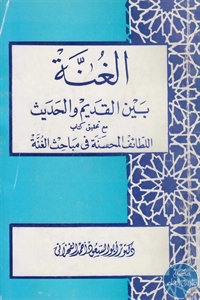 الغُنَّة
بين القديم والحديث
مع تحقيق كتاب
اللطائف المحسنة في مباحث الغنة
دكتور أبو السعود أحمد الفخراني